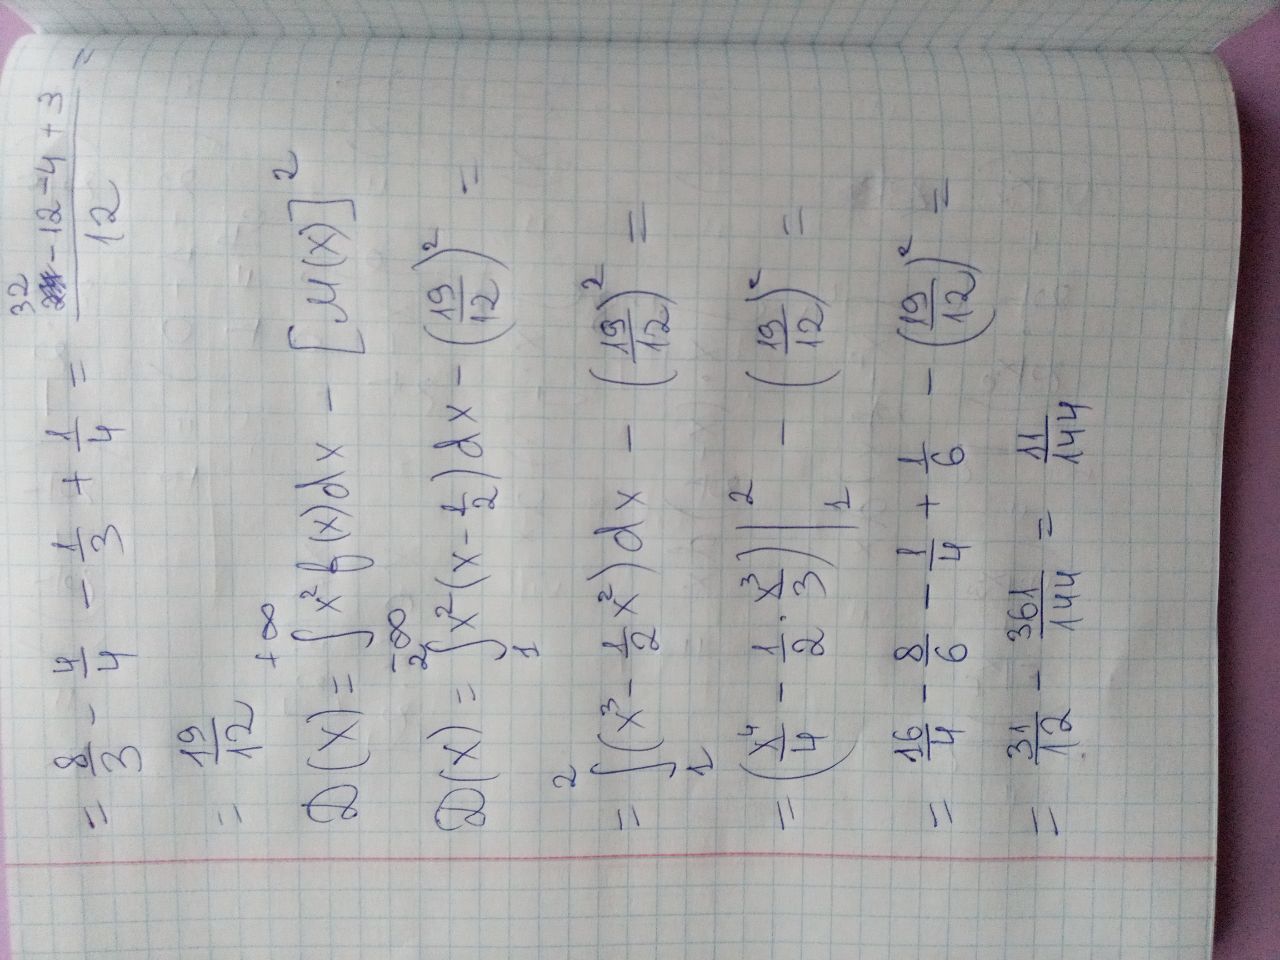 = 8/3 - 4/4 - 1/3 + 1/4 = (32 - 12 - 4 + 3)/12 =
= 19/12
D(X) = ∫_{-∞}^{+∞} x² f(x)dx - [M(X)]²
D(X) = ∫_1^2 x² (x - 1/2) dx - (19/12)² =
= ∫_1^2 (x³ - 1/2 x²) dx - (19/12)² =
= (x⁴/4 - 1/2 · x³/3) |_1^2 - (19/12)² =
= 16/4 - 8/6 - 1/4 + 1/6 - (19/12)² =
= 31/12 - 361/144 = 11/144